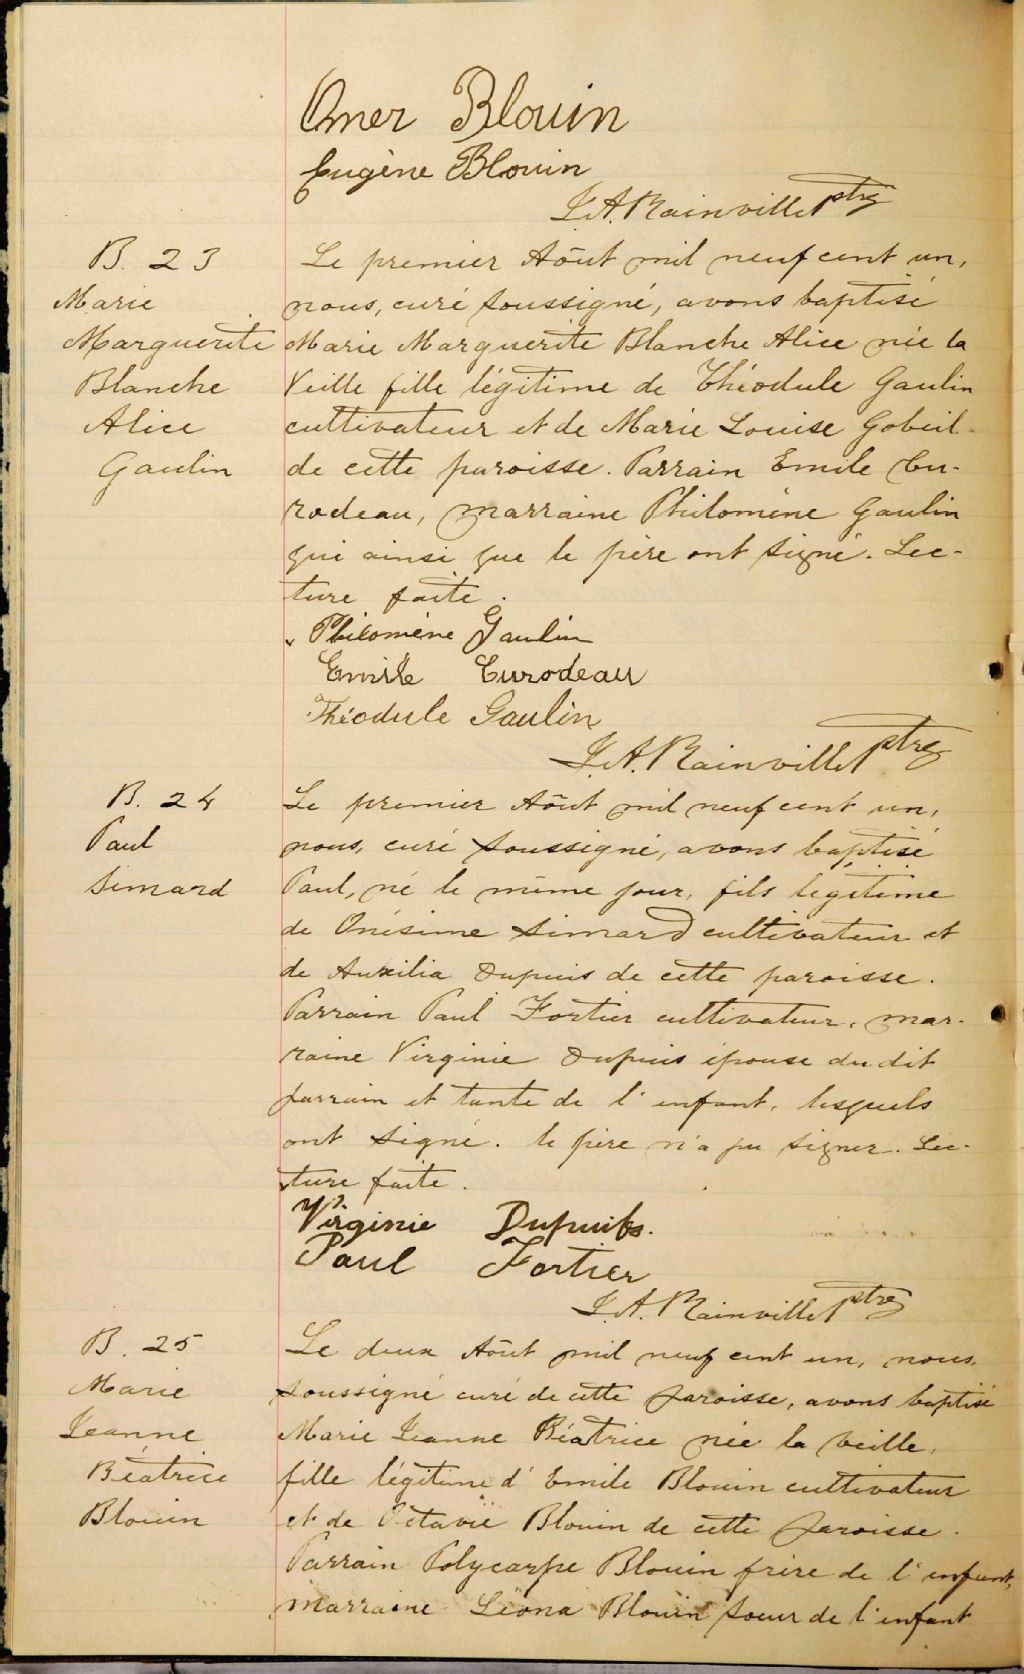 Omer Blouin
Eugène Blouin
J. A. Rainville Ptre
B. 23
Marie
Marguerite
Blanche
Alice
Gaulin
Le premier Août mil neuf cent un,
nous, curé soussigné, avons baptisé
Marie Marguerite Blanche Alice née la
Veille fille légitime de Théodule Gaulin
cultivateur et de Marie Louise Gobeil
de cette paroisse. Parrain Emile Cu-
rodeau, marraine Philomène Gaulin
qui ainsi que le père ont signé. Lec-
ture faite.
Philomène Gaulin
Emile Curodeau
Théodule Gaulin
J. A. Rainville Ptre
B. 24
Paul
Simard
Le premier Août mil neuf cent un,
nous, curé soussigné, avons baptisé
Paul, né le même jour, fils légitime
de Onésime Simard cultivateur et
de Auxilia Dupuis de cette paroisse.
Parrain Paul Fortier cultivateur, mar-
raine Virginie Dupuis épouse du dit
parrain et tante de l'enfant, lesquels
ont signé. le père n'a pu signer. Lec-
ture faite.
Virginie Dupuis.
Paul Fortier
J. A. Rainville Ptre
B. 25
Marie
Jeanne
Béatrice
Blouin
Le deux Août mil neuf cent un, nous
soussigné curé de cette paroisse, avons baptisé
Marie Jeanne Béatrice née la veille,
fille légitime d'Emile Blouin cultivateur
et de Octavie Blouin de cette paroisse.
Parrain Polycarpe Blouin frère de l'enfant,
marraine Léona Blouin soeur de l'enfant